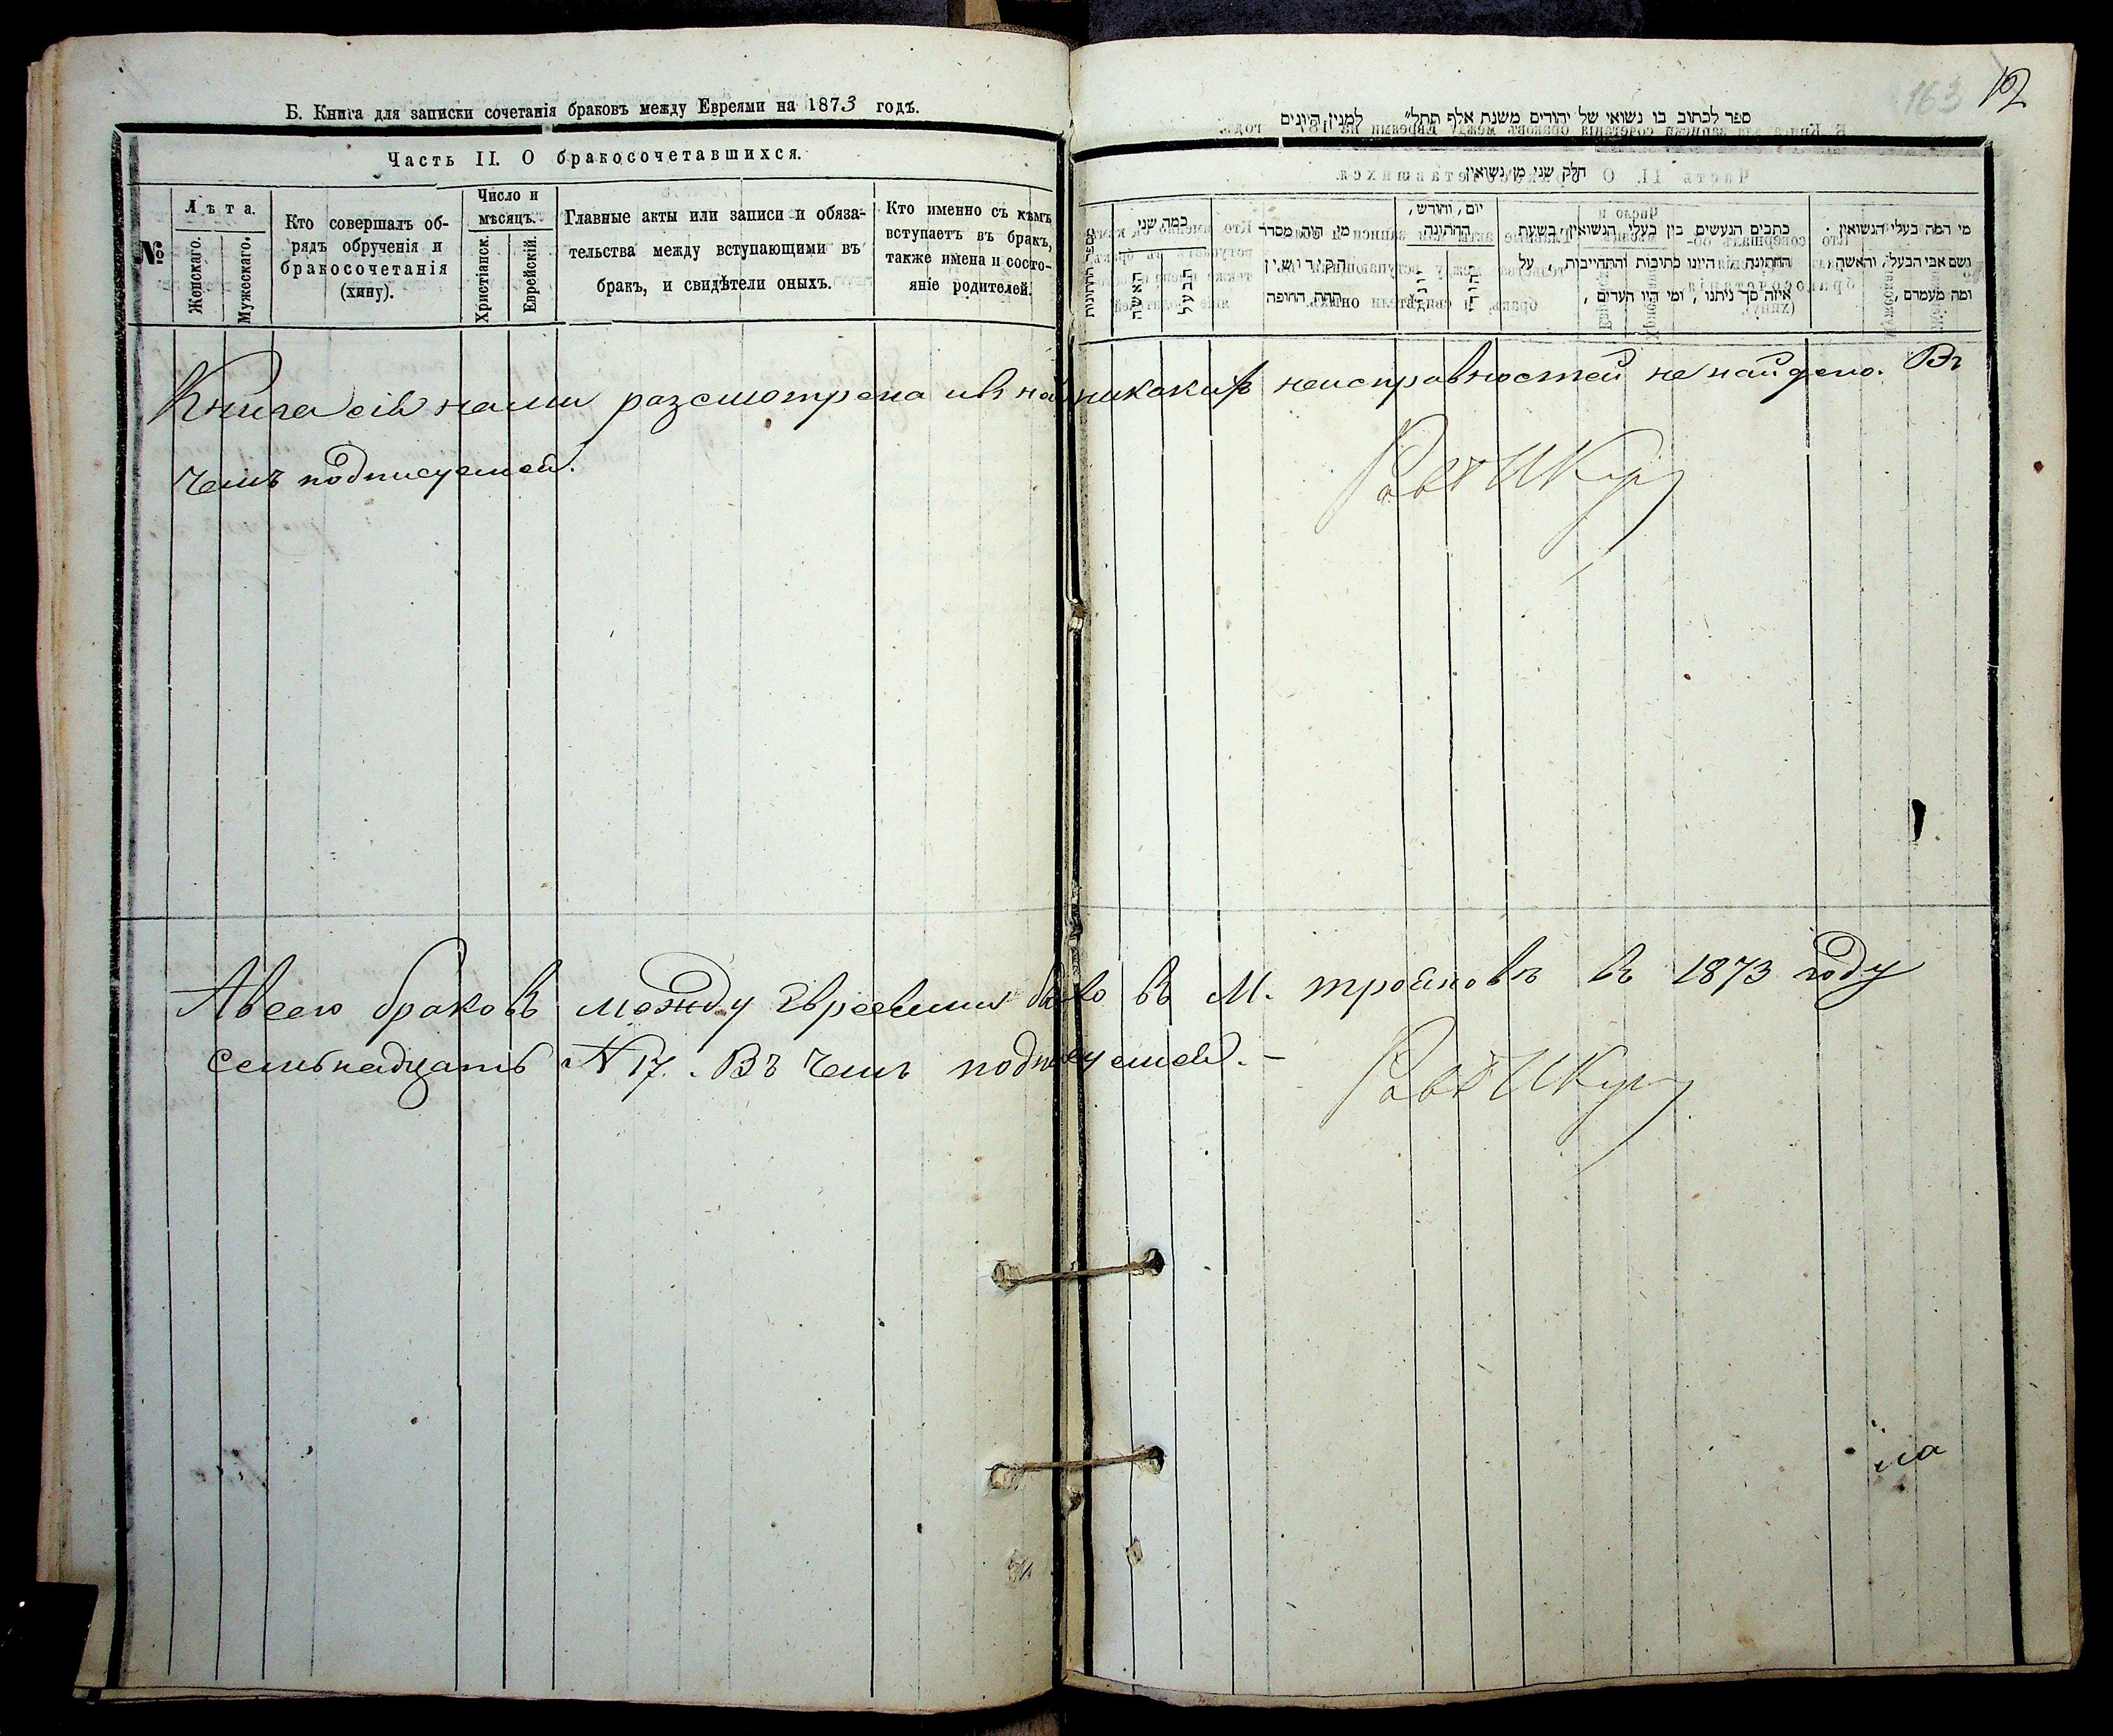 Б. Книга для записки сочетанія браковъ между Евреями на 1873 годъ.
Часть II. О бракосочетавшихся.
№
Лѣта.
Женскаго.
Мужескаго.
Кто совершалъ об-
рядъ обрученія и
бракосочетанія
(хину).
Число и
мѣсяцъ.
Христіанск.
Еврейскій.
Главные акты или записи и обяза-
тельства между вступающими въ
бракъ, и свидѣтели оныхъ.
Кто именно съ кѣмъ
вступаетъ въ бракъ,
также имена и состо-
яніе родителей.
163
ספר לכתוב בו נשואי של יהודים משנת אלף תתל״ למנין היונים
חלק שני מן נשואין
מספר החתונות
כמה שני
האשה
הבעל
מי היה מסדר
הקידושין
תחת החופה
יום, וחודש,
החתונה
יוני
יהודי
כתבים הנעשים בין בעלי הנשואין, בשעת
החתונה, היינו כתיבות והתחייבות, על
איזה סך ניתנו, ומי היו העדים,
מי המה בעלי הנשואין
ושם אבי הבעל, והאשה
ומה מעמדם,
Книга сія нами разсмотрена и въ ней никакихъ неисправностей не найдено. Въ
чемъ подписуемся.
А всего браковъ между Евреями было въ М. трояновъ въ 1873 году
семьнадцать N 17. Въ чемъ подписуемся. –